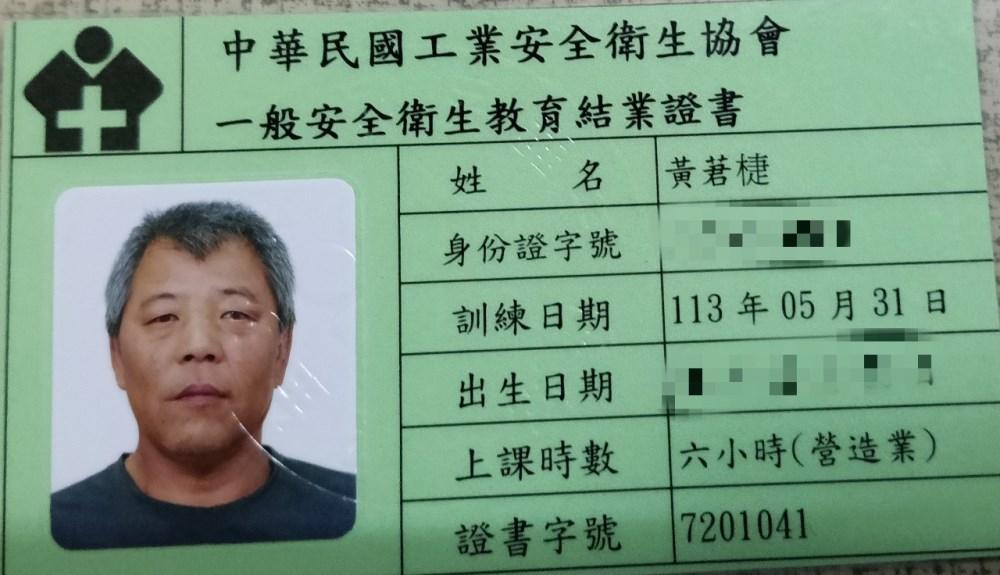 中華民國工業安全衛生協會
一般安全衛生教育結業證書
姓名 黃茗楗
身份證字號
訓練日期 113年05月31日
出生日期
上課時數 六小時(營造業)
證書字號 7201041